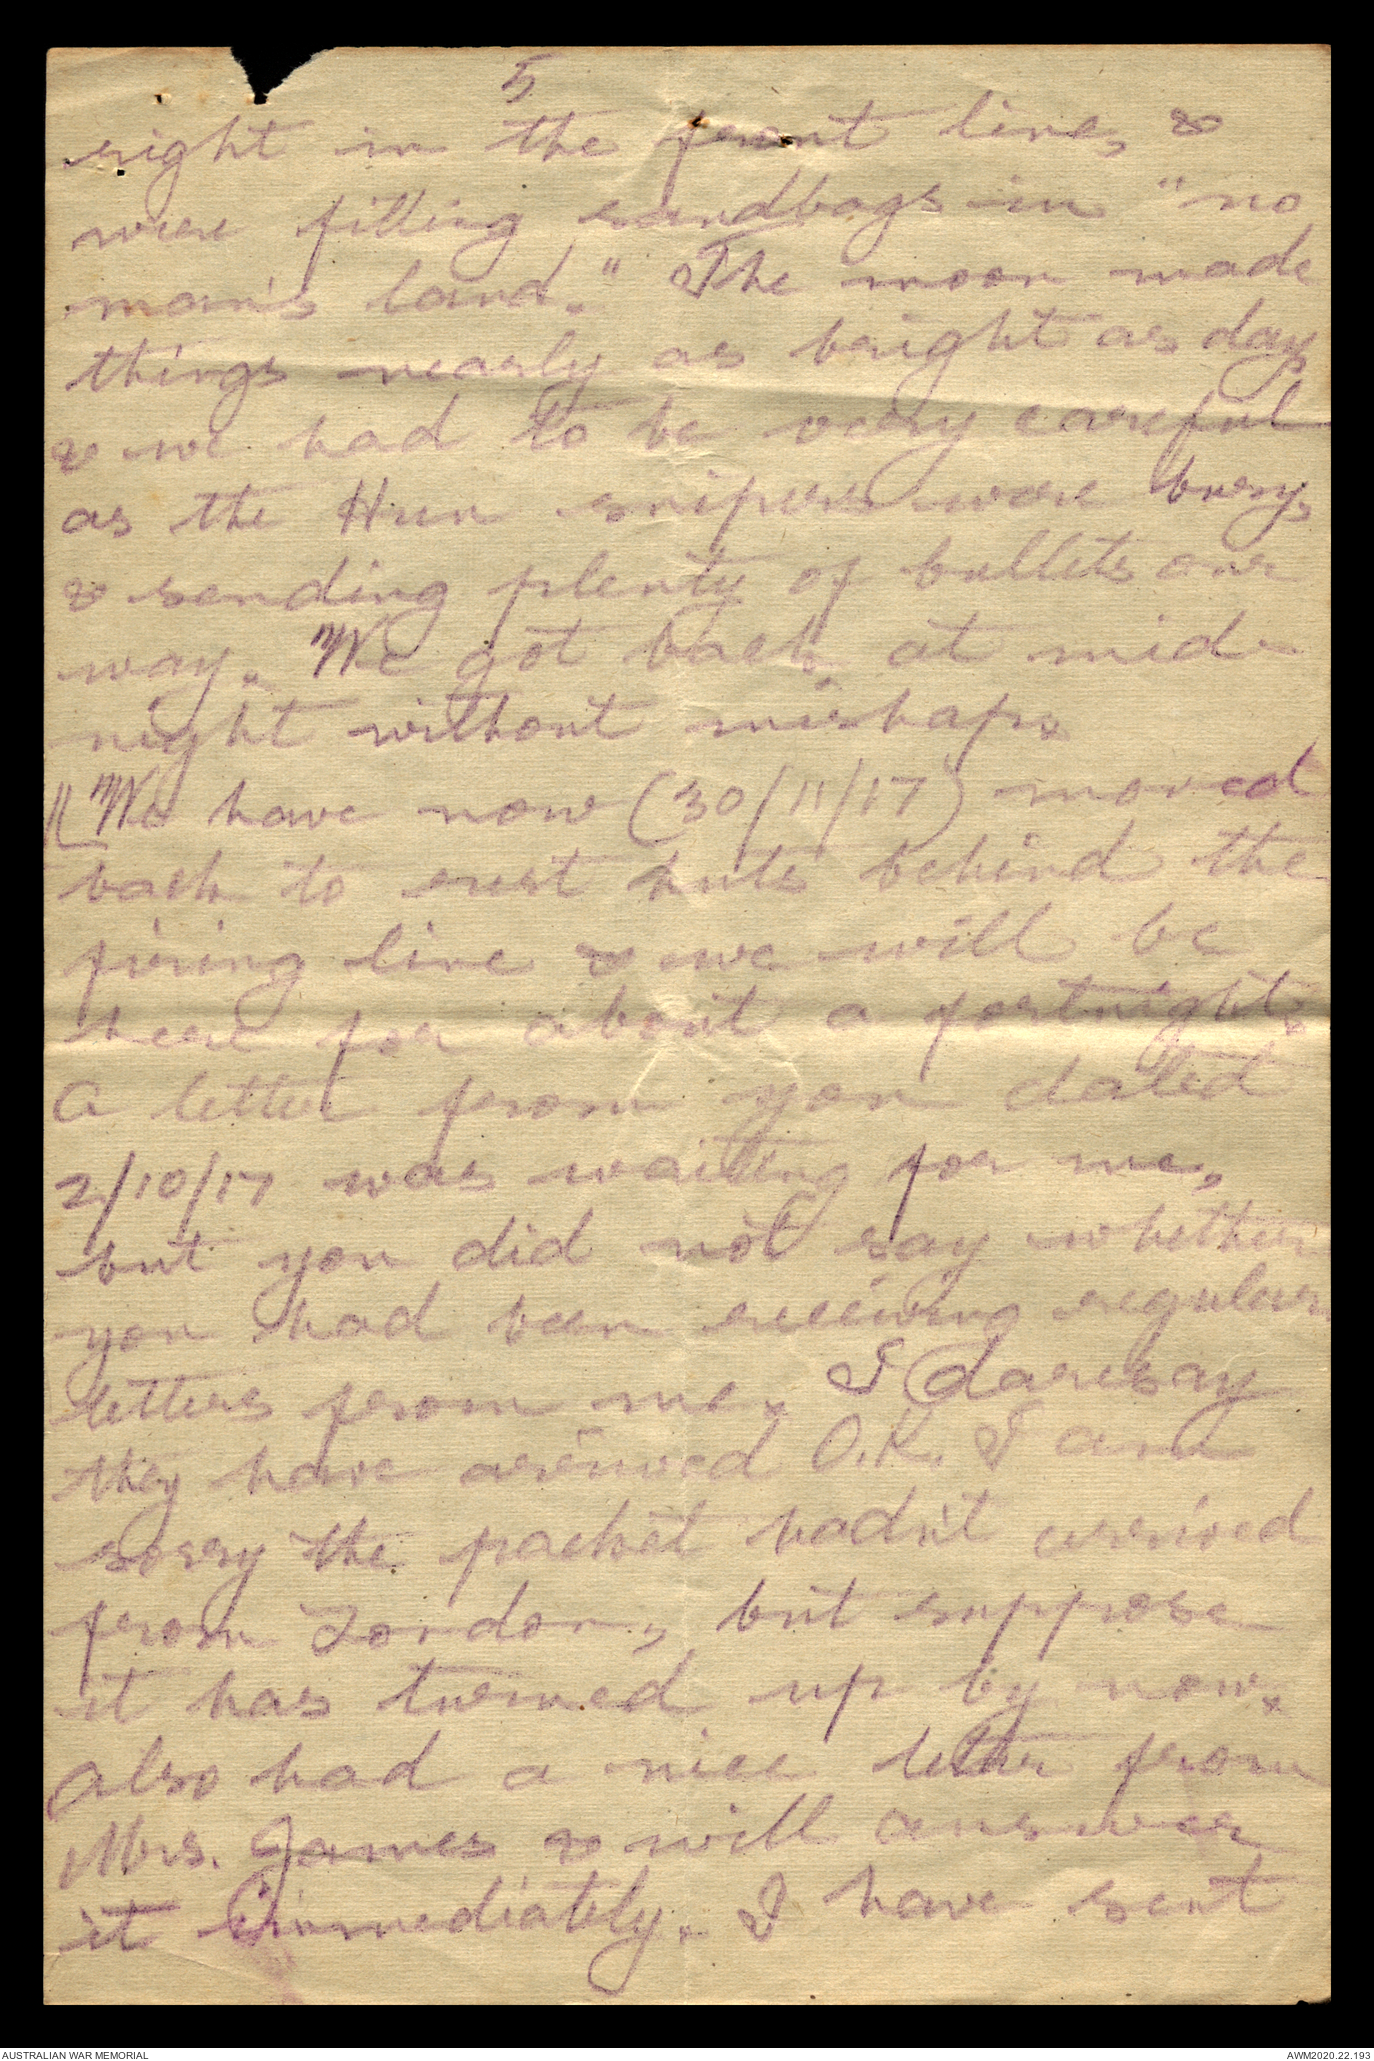 5
right in the front line, &
were filling sandbags in "no
man's land." The moon made
things nearly as bright as day
& we had to be very careful
as the Hun snipers were busy,
& sending plenty of bullets our
way. We got back at mid-
night without mishap.
We have now (30/11/17) moved
back to rest huts behind the
firing line & we will be
here for about a fortnight.
A letter from you dated
2/10/17 was waiting for me,
but you did not say whether
you had been receiving regular
letters from me. I daresay
they have arrived O.K. I am
sorry the packet hadn't arrived
from London, but suppose
it has turned up by now.
Also had a nice letter from
Mrs. James & will answer
it immediately. I have sent
AUSTRALIAN WAR MEMORIAL
AWM2020.22.193